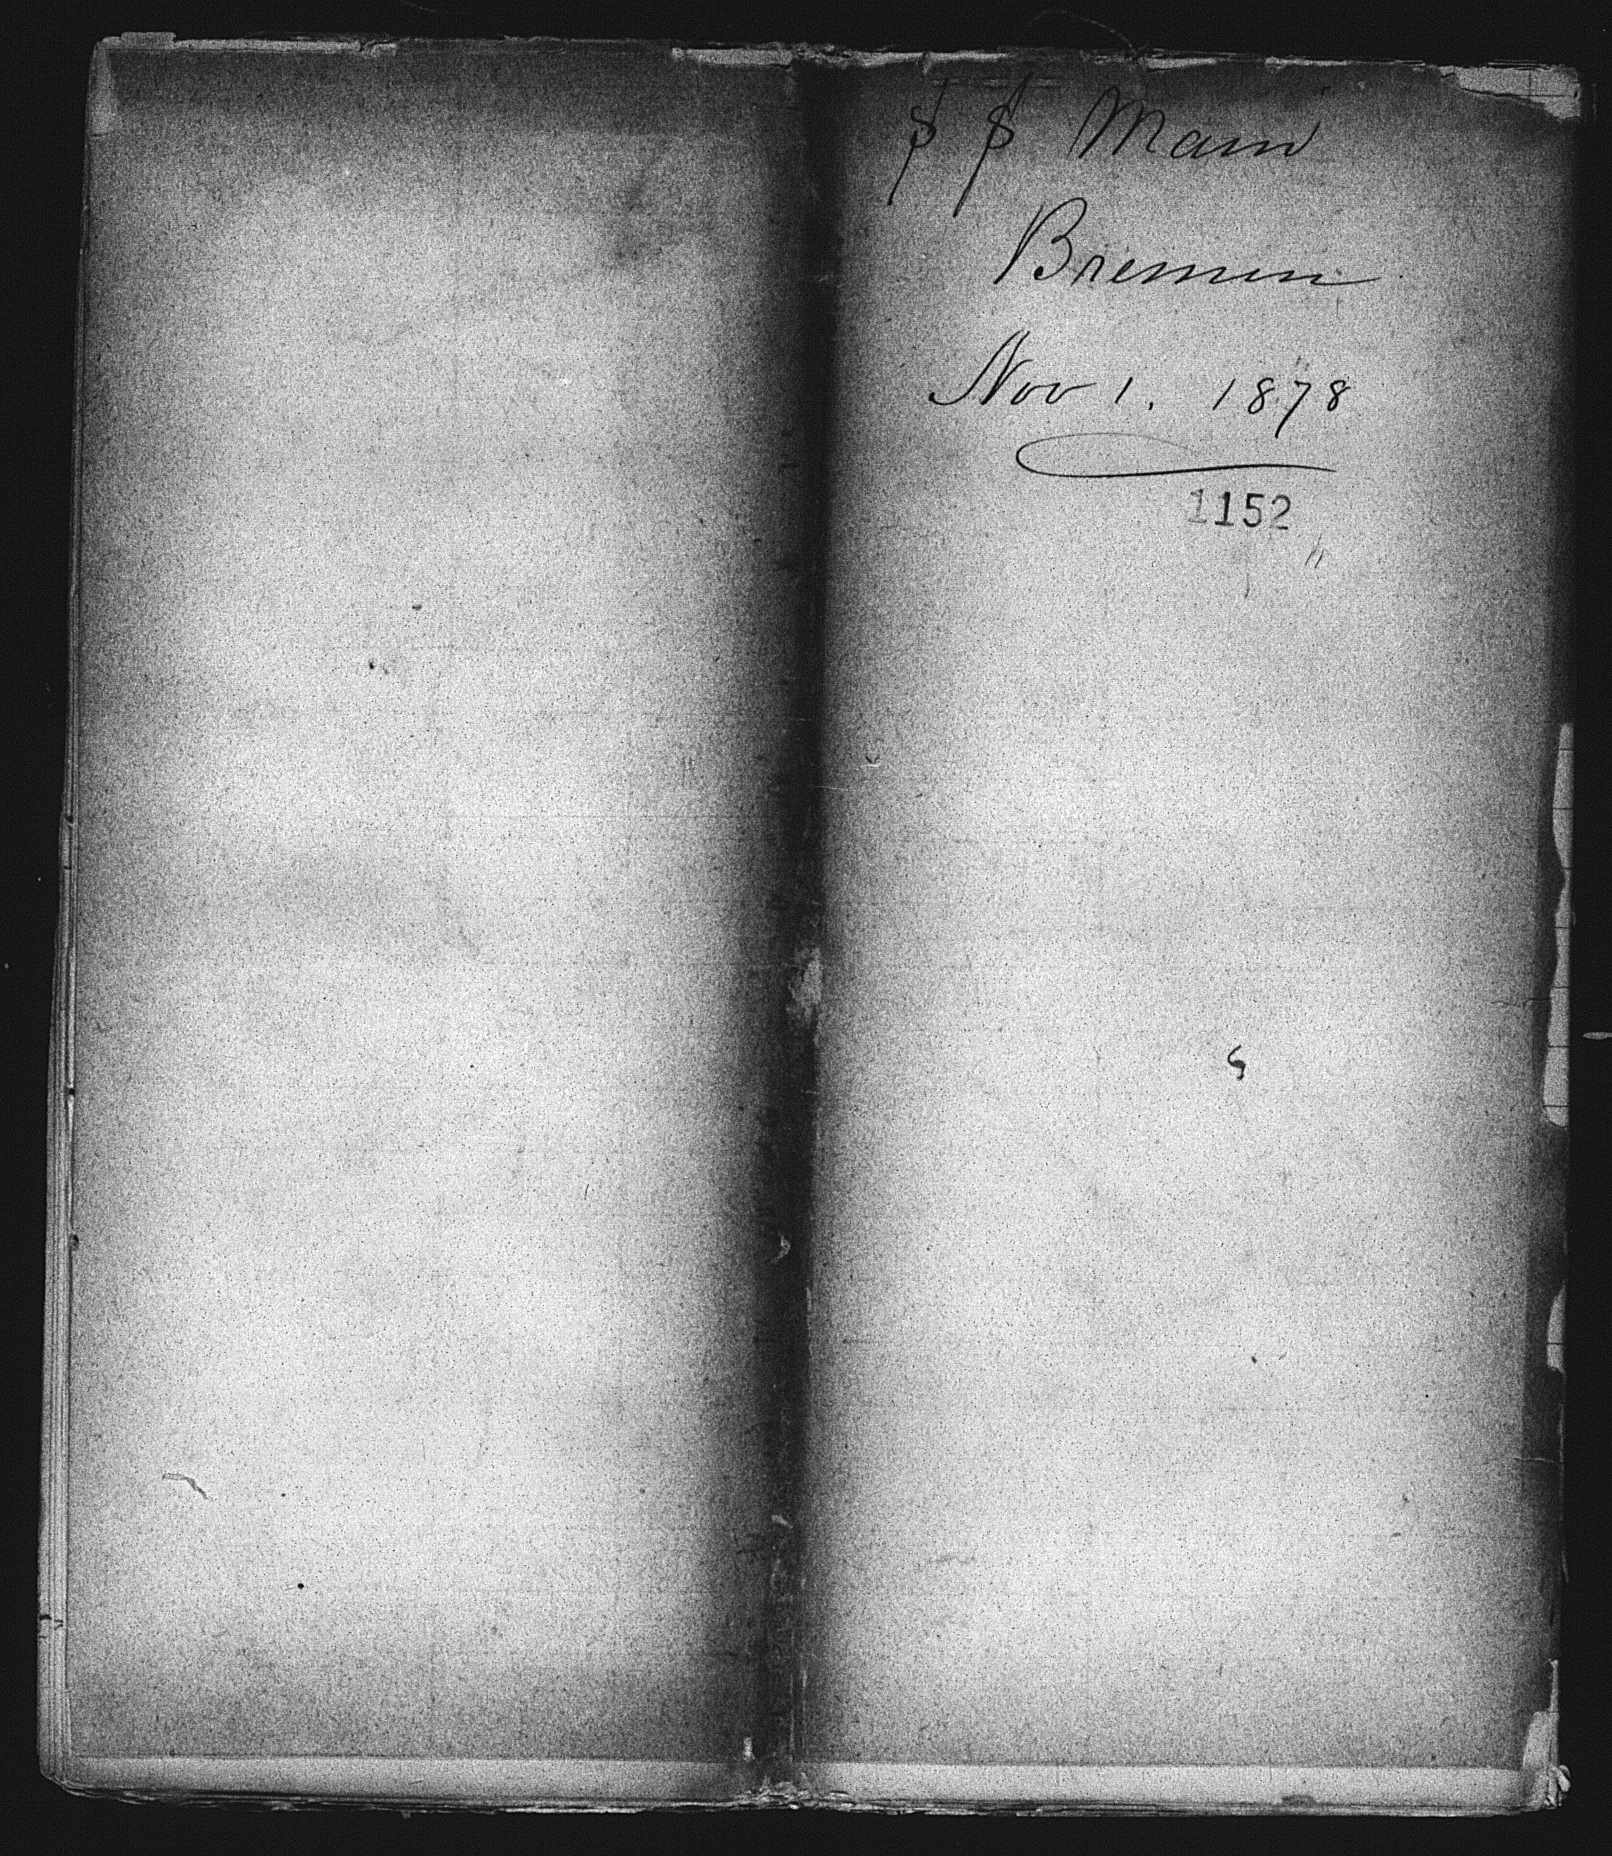 SS Main
Bremen
Nov 1. 1878
1152